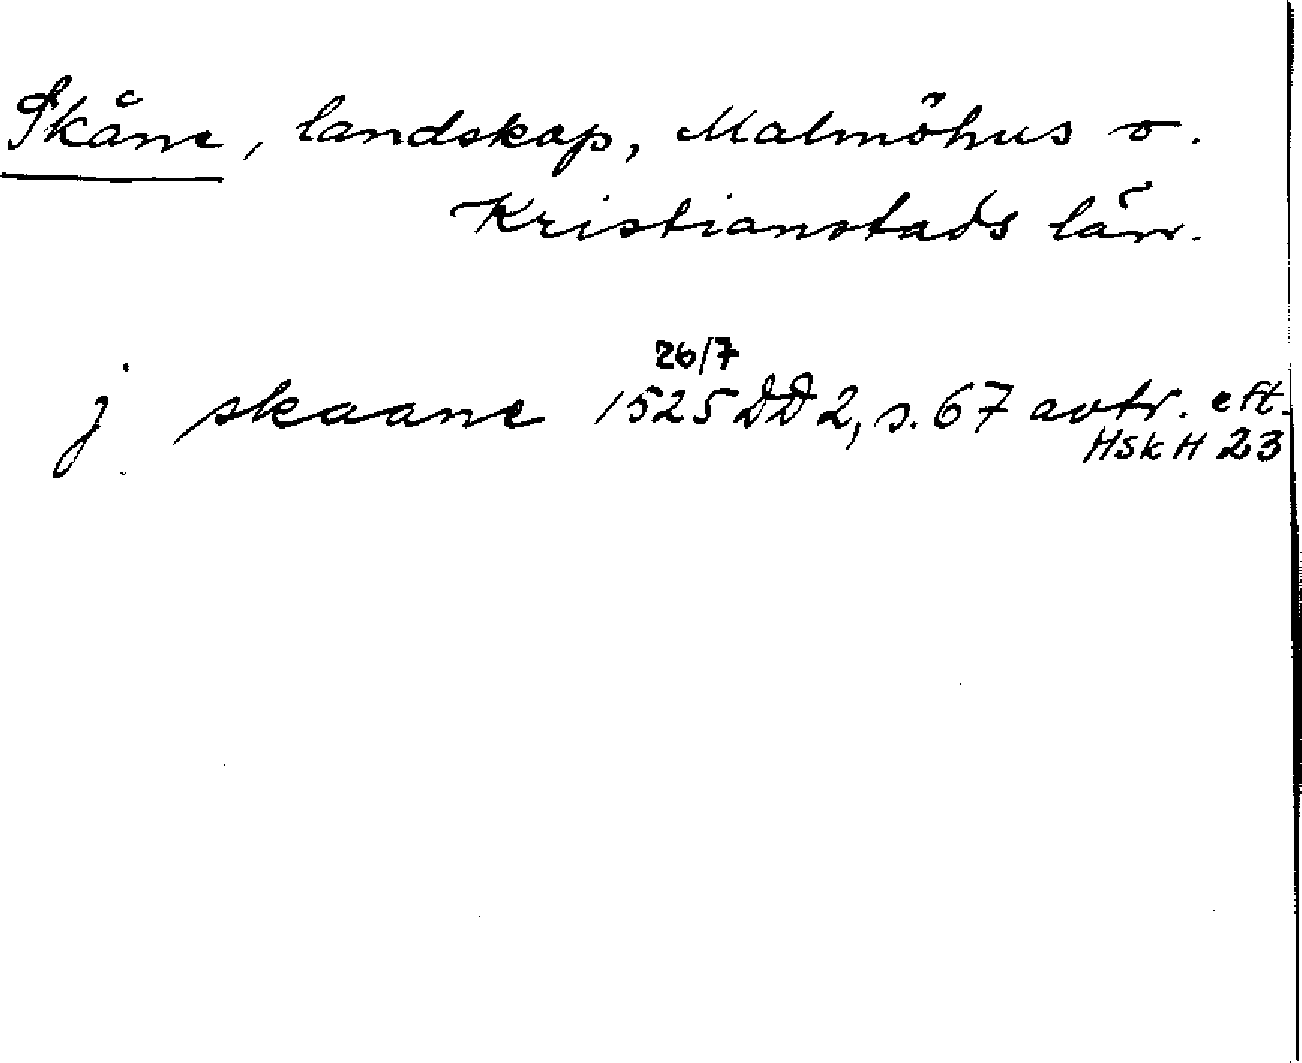 Skåne, landskap, Malmöhus o.
Kristianstads län.
j skaane 1525 26/7 DD 2, s. 67 avtr. eft.
HSkH 23